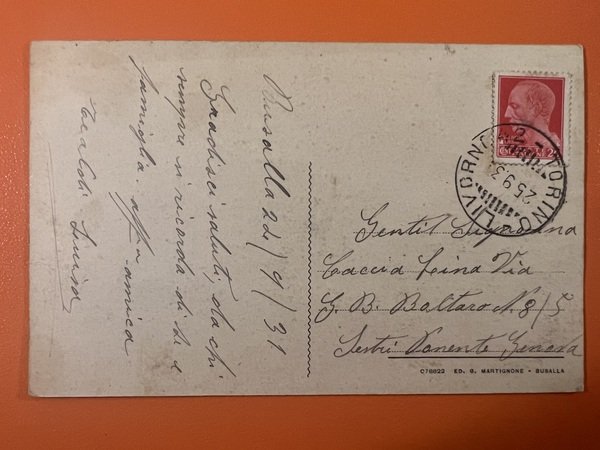 Busalla 24/9/31
Gradisci saluti, da chi
sempre si ricorda di te e
famiglia. aff. amica
Luisa
Gentil Signorina
Caccia Lina Via
G. B. Boltaro N. 8/5
Sestri Ponente Genova
TORINO
LIVORNO
25.9.3
C78822 ED. G. MARTIGNONE - BUSALLA